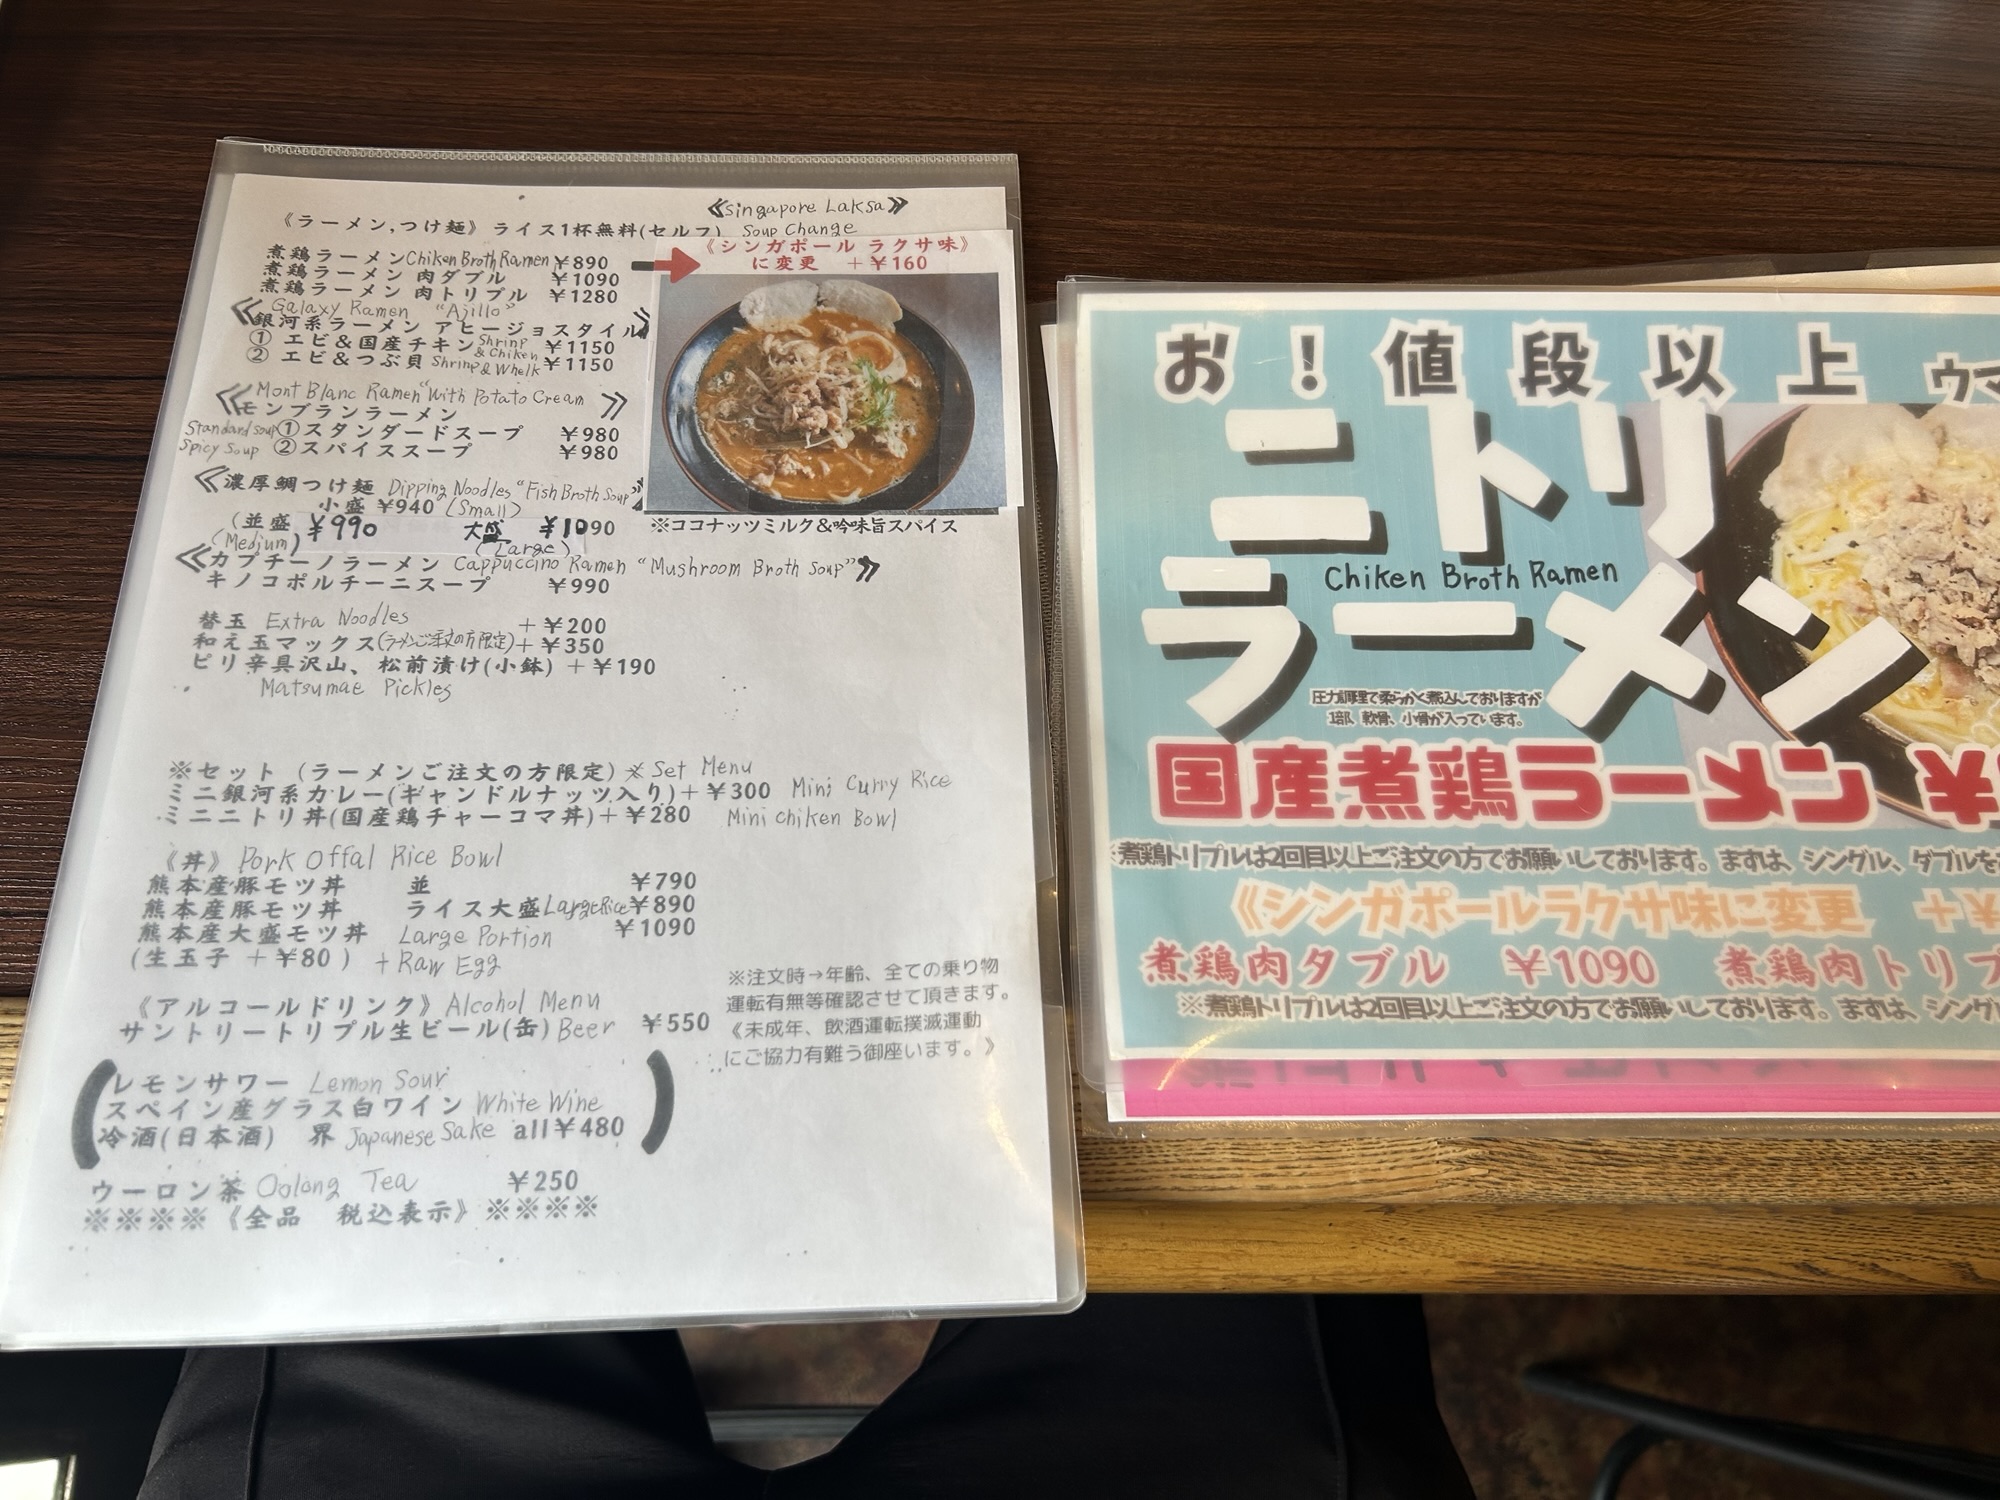 《Singapore Laksa》
《ラーメン,つけ麺》ライス1杯無料(セルフ) Soup Change
煮鶏ラーメン Chiken Broth Ramen ¥890
煮鶏ラーメン 肉ダブル ¥1090
煮鶏ラーメン 肉トリプル ¥1280
《シンガポール ラクサ味》
に変更 +¥160
《Galaxy Ramen "Ajillo"
銀河系ラーメン アヒージョスタイル》
① エビ&国産チキン Shrinp & Chiken ¥1150
② エビ&つぶ貝 Shrinp & Whelk ¥1150
《Mont Blanc Ramen "With Potato Cream》
モンブランラーメン
Standard soup ①スタンダードスープ ¥980
Spicy Soup ②スパイススープ ¥980
《濃厚鯛つけ麺 Dipping Noodles "Fish Broth Soup"》
小盛 ¥940 (Small)
(並盛 ¥990 大盛 ¥1090
(Medium) (Large)
※ココナッツミルク&吟味旨スパイス
《カプチーノラーメン Cappuccino Ramen "Mushroom Broth Soup"》
キノコポルチーニスープ ¥990
替玉 Extra Noodles +¥200
和え玉マックス(ラーメンご注文の方限定)+¥350
ピリ辛具沢山、松前漬け(小鉢) +¥190
Matsumae Pickles
※セット (ラーメンご注文の方限定) ※ Set Menu
ミニ銀河系カレー(キャンドルナッツ入り)+¥300 Mini Curry Rice
ミニニトリ丼(国産鶏チャーコマ丼)+¥280 Mini Chiken Bowl
《丼》 Pork Offal Rice Bowl
熊本産豚モツ丼 並 ¥790
熊本産豚モツ丼 ライス大盛 Large Rice ¥890
熊本産大盛モツ丼 Large Portion ¥1090
(生玉子 +¥80) + Raw Egg
《アルコールドリンク》 Alcohol Menu
サントリートリプル生ビール(缶) Beer ¥550
※注文時→年齢、全ての乗り物
運転有無等確認させて頂きます。
《未成年、飲酒運転撲滅運動
にご協力有難う御座います。》
(レモンサワー Lemon Sour
スペイン産グラス白ワイン White Wine
冷酒(日本酒) 界 Japanese Sake all¥480)
ウーロン茶 Oolong Tea ¥250
※※※※《全品 税込表示》※※※※
お!値段以上 ウマ
ニトリ
Chiken Broth Ramen
ラーメン
圧力調理で柔らかく煮込んでおりますが
1部、軟骨、小骨が入っています。
国産煮鶏ラーメン ¥
※煮鶏トリプルは2回目以上ご注文の方でお願いしております。まずは、シングル、ダブルを
《シンガポールラクサ味に変更 +¥
煮鶏肉ダブル ¥1090 煮鶏肉トリプ
※煮鶏トリプルは2回目以上ご注文の方でお願いしております。まずは、シング